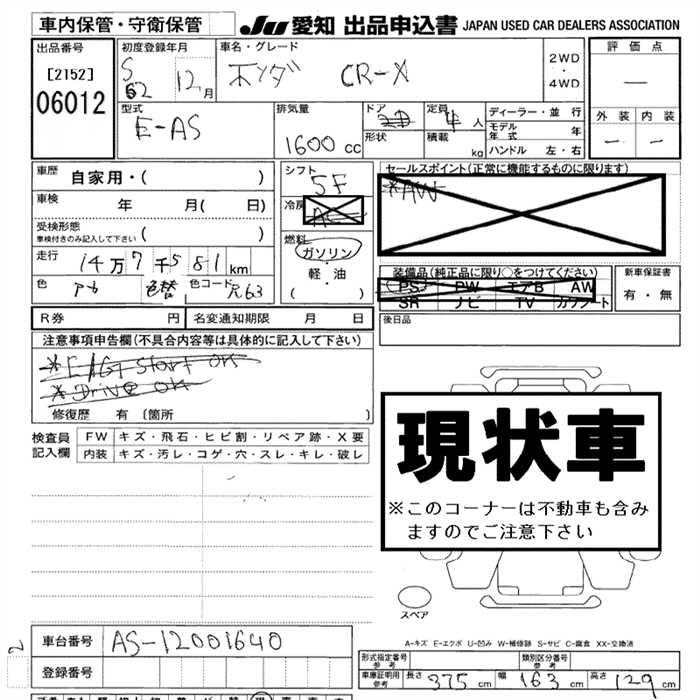 車内保管・守衛保管
JU 愛知 出品申込書 JAPAN USED CAR DEALERS ASSOCIATION
出品番号
[2152]
06012
初度登録年月
S 62 12月
車名・グレード
ホンダ CR-X
2WD
・
4WD
評価点
―
外装 内装
型式
E-AS
排気量
1600 cc
ドア
形状
定員 4 人
積載 kg
ディーラー・並行
モデル年式 年
ハンドル 左・右
車歴 自家用・( )
車検 年 月( 日)
受検形態
車検付きのみ記入して下さい ( )
走行 14万7千581km
色 アカ 色替 色コード R63
シフト
5F
冷房
AC
燃料
ガソリン
・
軽・油
( )
セールスポイント(正常に機能するものに限ります)
*AW
装備品(純正品に限り○をつけてください)
PS PW エアB AW
SR ナビ TV カワシート
新車保証書
有・無
R券 円 名変通知期限 月 日
後日品
注意事項申告欄(不具合内容等は具体的に記入して下さい)
*E/G Start OK
*Drive OK
修復歴 有〔箇所 〕
検査員
記入欄
FW キズ・飛石・ヒビ割・リペア跡・X要
内装 キズ・汚レ・コゲ・穴・スレ・キレ・破レ
現状車
※このコーナーは不動車も含み
ますのでご注意下さい
スペア
A-キズ E-エクボ U-凹み W-補修跡 S-サビ C-腐食 XX-交換済
車台番号 AS-12001640
登録番号
2
形式指定番号
参考
類別区分番号
参考
車庫証明用
参考
長さ 375 cm 幅 163 cm 高さ 129 cm